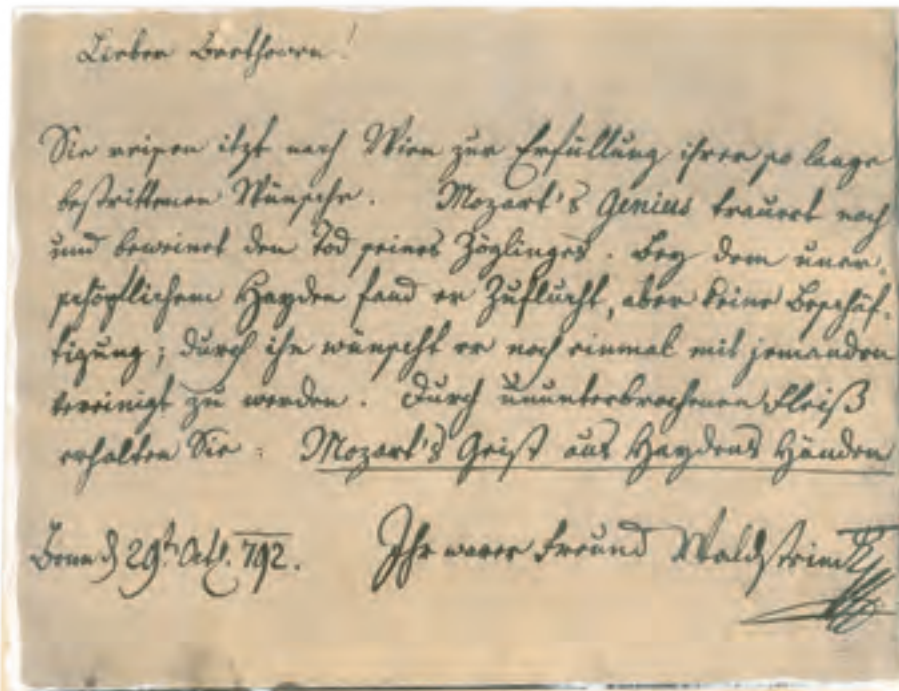 Lieber Beethowen!
Sie reisen itzt nach Wien zur Erfüllung ihrer so lange
bestrittenen Wünsche. Mozart's Genius trauert noch
und beweinet den Tod seines Zöglinges. Bey dem uner,
schöpflichem Hayden fand er Zuflucht, aber keine Beschäf,
tigung; durch ihn wünscht er noch einmal mit jemanden
vereinigt zu werden. Durch ununterbrochenen Fleiß
erhalten Sie: Mozart's Geist aus Haydens Händen
Bonn d 29t. Oct. 792. Ihr warer Freund Waldstein